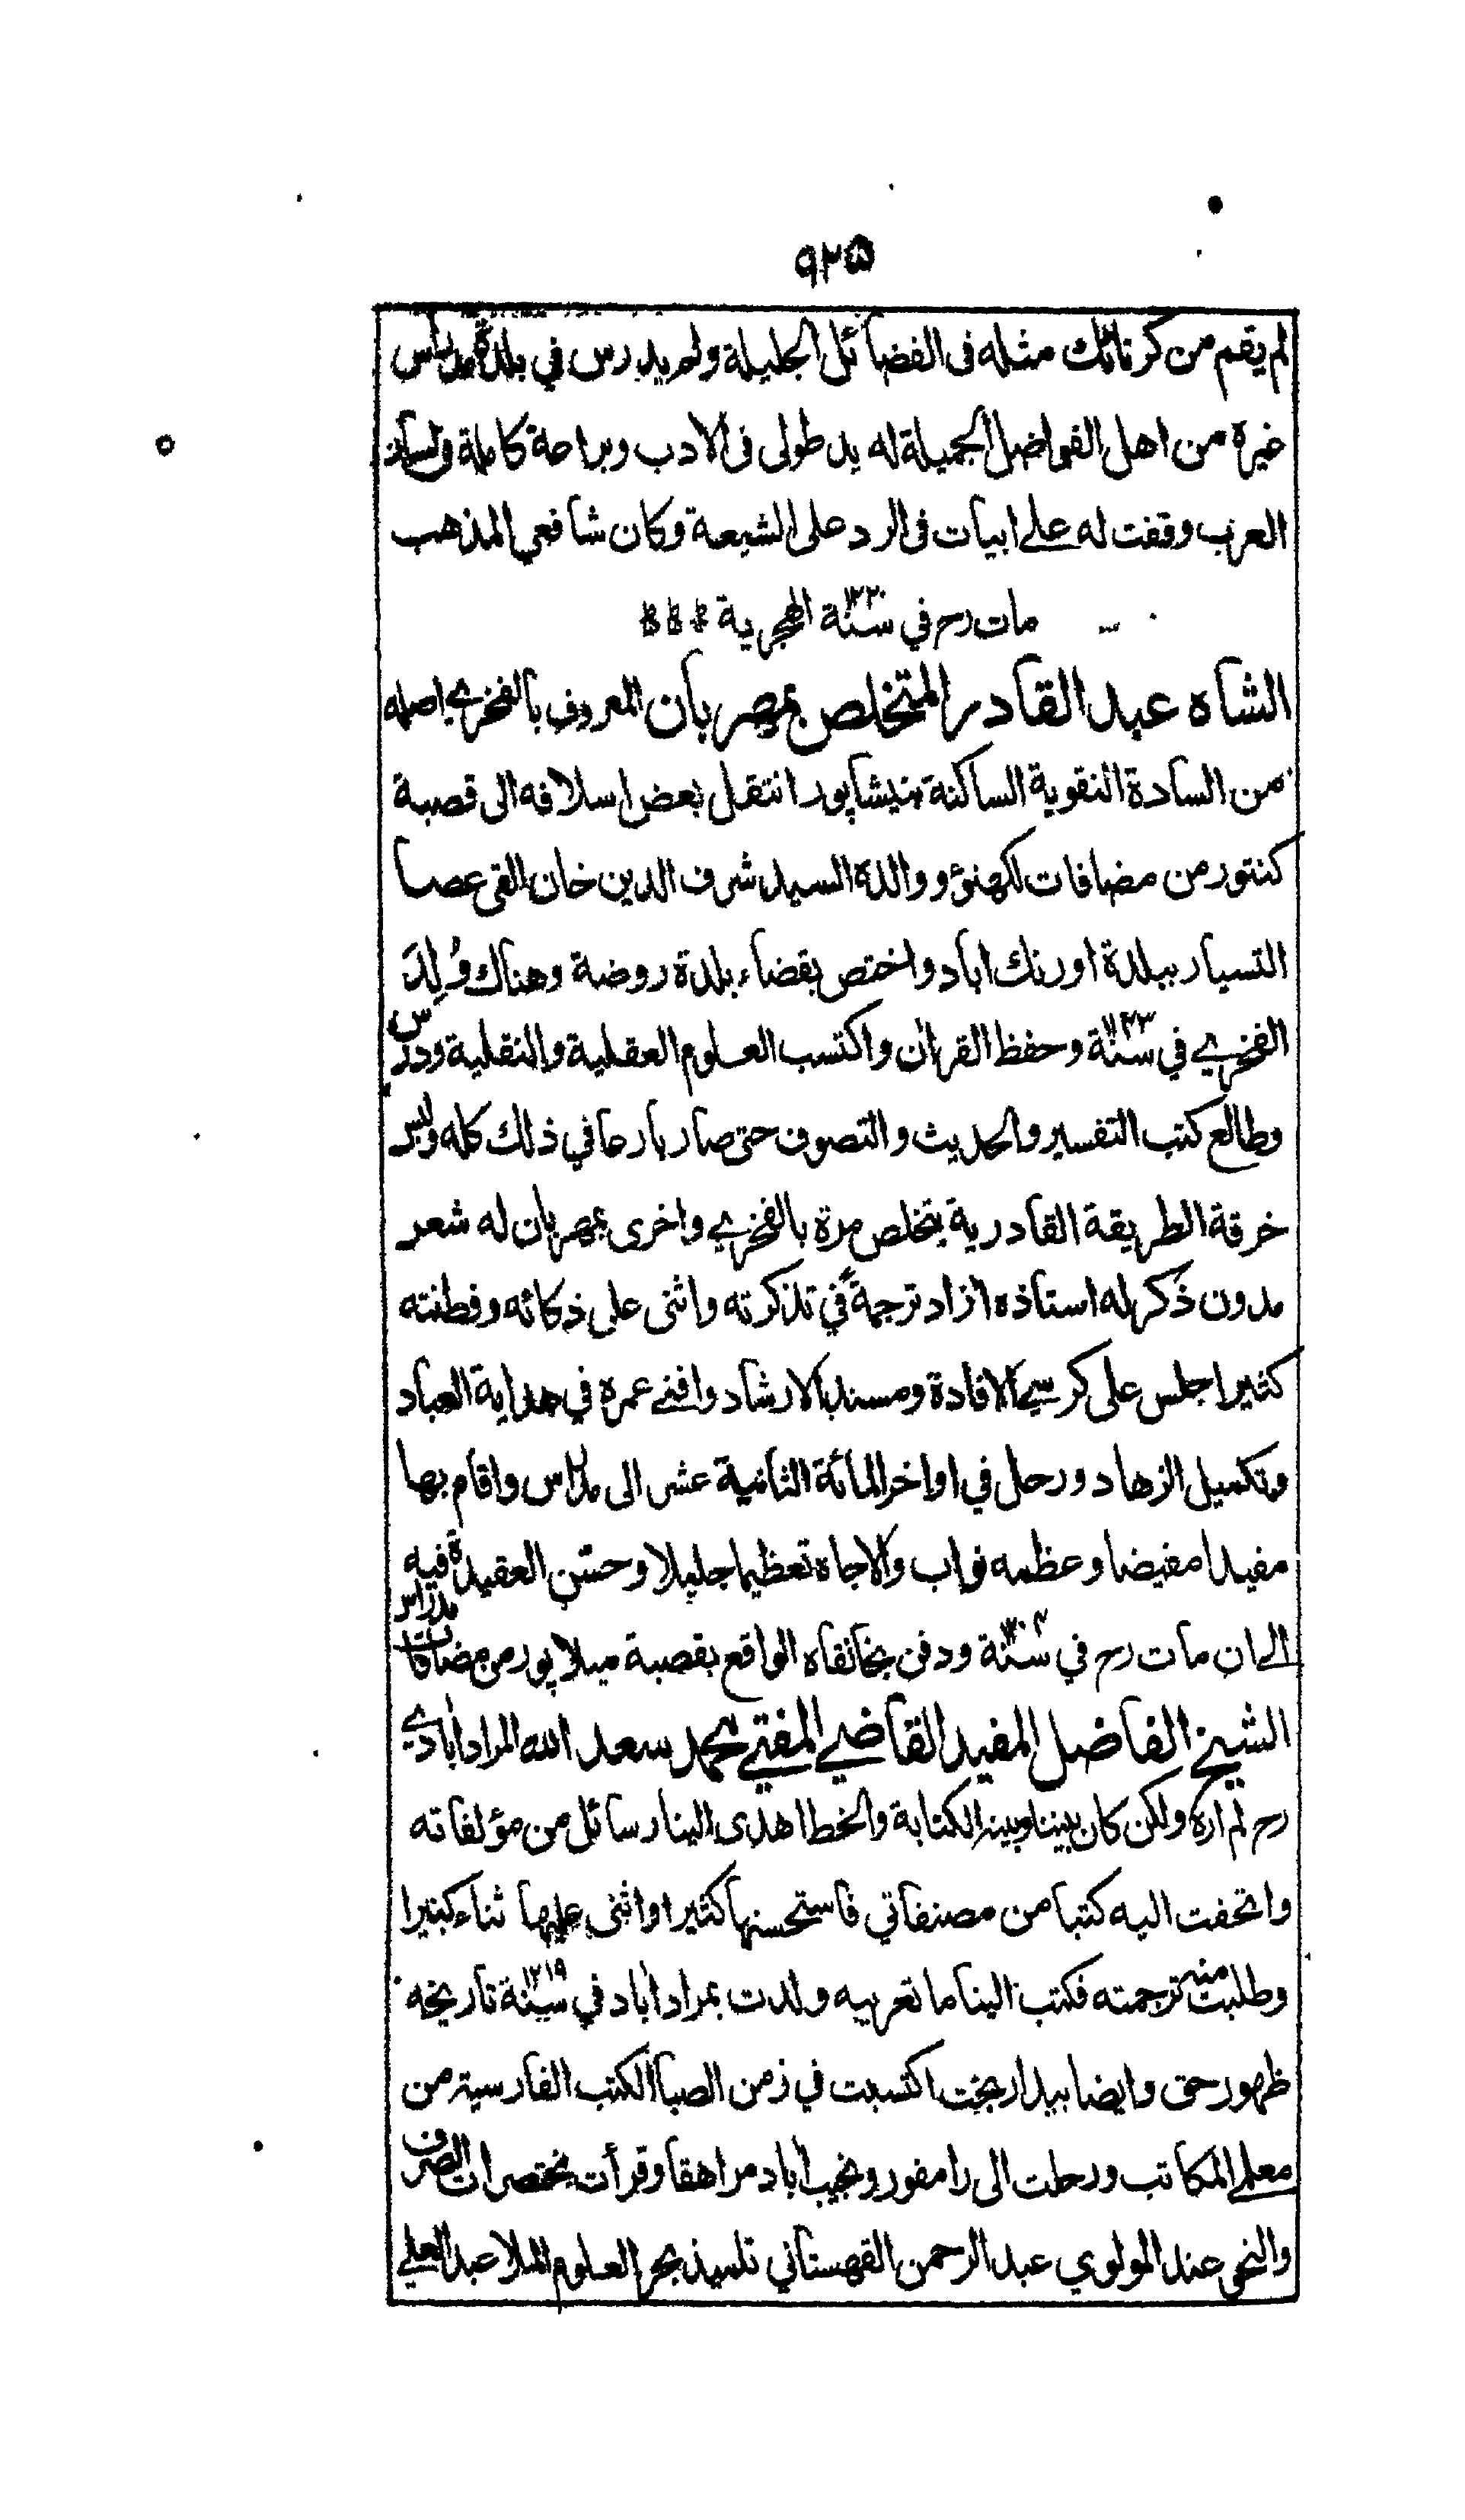 ٩٢٥
لم يقم من كرناٹك مثله فى الفضائل الجليلة ولم يدرس في بلدة مدراس
غيره من اهل الفواضل الجميلة له يد طولى فى الادب وبراعة كاملة فى لسان
العرب وقفت له على ابيات فى الرد على الشيعة وكان شافعي المذهب
مات رح في سنة ١٢٢٠ الهجرية
الشاه عبد القادر المتخلص بمهربان المعروف بالفخري اصله
من السادة النقوية الساكنة بنيشاپور انتقل بعض اسلافه الى قصبة
كنتور من مضافات لكهنؤ ووالده السيد شرف الدين خان القى عصا
التسيار ببلدة اورنك اباد واختص بقضاء بلدة روضة وهناك وُلِدَ
الفخري في سنة ١١٤٣ وحفظ القرآن واكتسب العلوم العقلية والنقلية ودرس
وطالع كتب التفسير والحديث والتصوف حتى صار بارعا في ذلك كله ولبس
خرقة الطريقة القادرية يتخلص مرة بالفخري واخرى بمهربان له شعر
مدون ذكر له استاذه آزاد ترجمة في تذكرته واثنى على ذكائه وفطنته
كثيرا جلس على كرسي الافادة ومسند الارشاد وافنى عمره في هداية العباد
وتكميل الزهاد ورحل في اواخر المائة الثانية عشر الى مدراس واقام بها
مفيدا مفيضا وعظمه نواب والاجاه تعظيما جليلا وحسّن العقيدة فيه
الى ان مات رح في سنة ودفن بخانقاه الواقع بقصبة ميلاپور من مضافات مدراس
الشيخ الفاضل المفيد القاضي المفتي محمد سعد الله المرادآبادي
رح لم اره ولكن كان بيننا وبينه الكتابة والخط اهدى الينا رسائل من مؤلفاته
واتحفت اليه كتبا من مصنفاتي فاستحسنها كثيرا واثنى عليها ثناء كبيرا
وطلبت منه ترجمته فكتب الينا ما تعريبه ولدت بمرادآباد في سنة ١٢١٩ تاريخه
ظهور حق وايضا بيدار بخت اكتسبت في زمن الصبا الكتب الفارسية من
معلمي المكاتب ورحلت الى رامفور ونجيب آباد مراهقا وقرأت مختصرات الصرف
والنحو عند المولوي عبد الرحمن القهستاني تلميذ بحر العلوم الملا عبد العلي